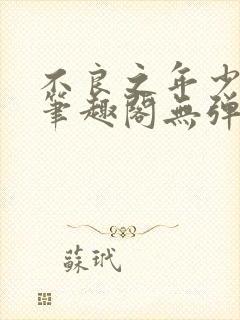 不良之年少
筆趣閣無彈
蘇玳